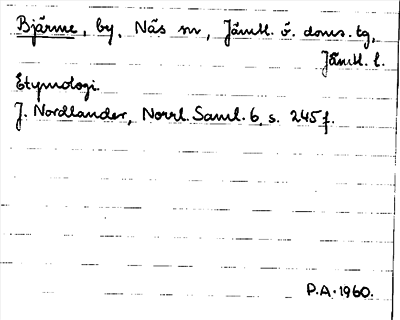 Bjärme, by, Näs sn, Jämtl. ö. doms. tg,
Jämtl. l.
Etymologi.
J. Nordlander, Norrl. Saml. 6, s. 245 f.
P.A. 1960.